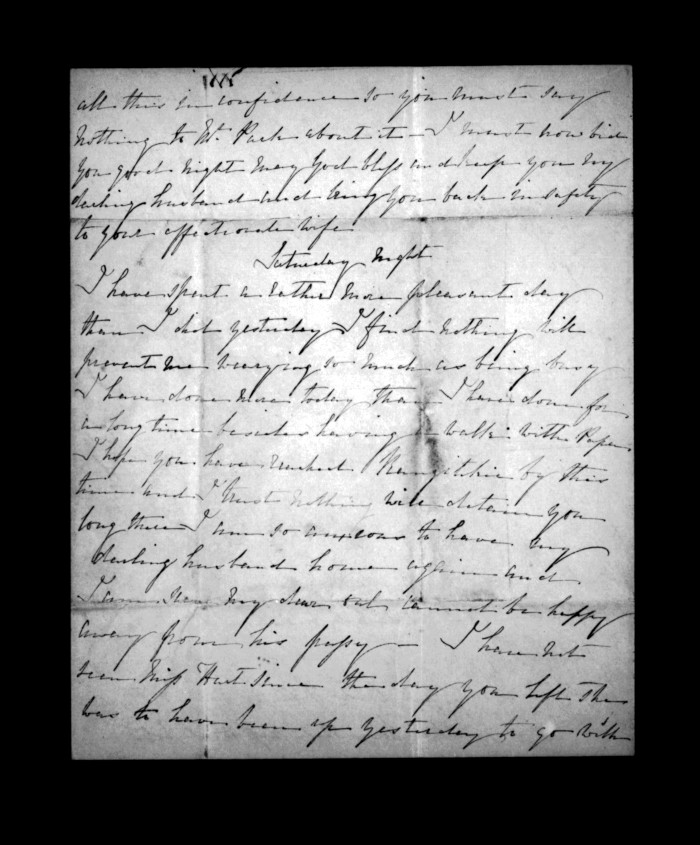 all this in confidence so you must say
nothing to Mr. Park about it – I must now bid
you good night may God bless and keep you my
darling husband and bring you back in safety
to your affectionate wife
Saturday night
I have spent a rather more pleasant day
than I did yesterday I find nothing will
prevent me worrying so much as being busy
I have done more today than I have done for
a long time besides having a walk with Papa
I hope you have reached Rangitikei by this
time and I trust nothing will detain you
long there I am so anxious to have my
darling husband home again and
I am sure my dear old cannot be happy
away from his pussy – I have not
seen Miss Hart since the day you left she
was to have been up yesterday to go with